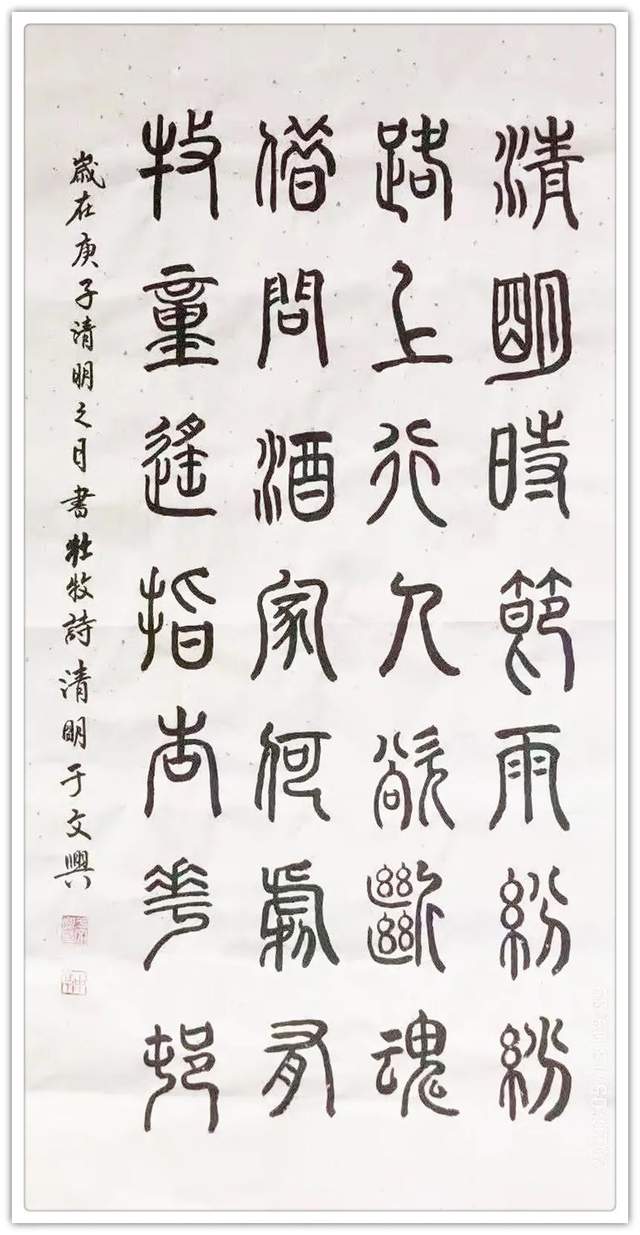 清明時節雨紛紛
路上行人欲斷魂
借問酒家何處有
牧童遙指杏花邨
歲在庚子清明之日書杜牧詩清明于文興